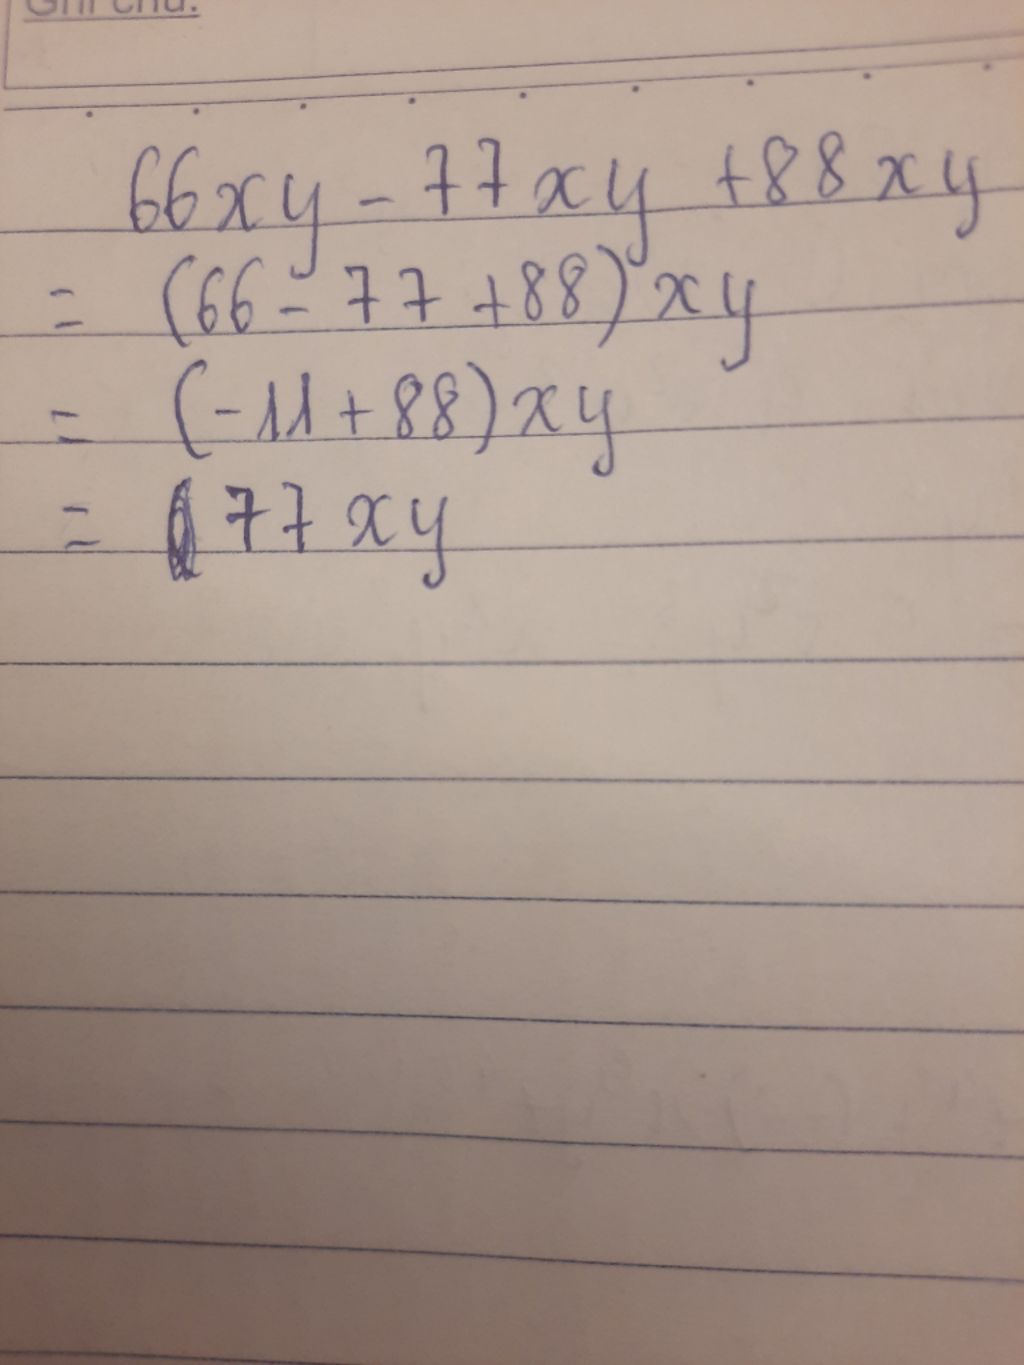 Ghi chú:
66xy - 77xy + 88xy
= (66 - 77 + 88) xy
= (-11 + 88) xy
= 77 xy